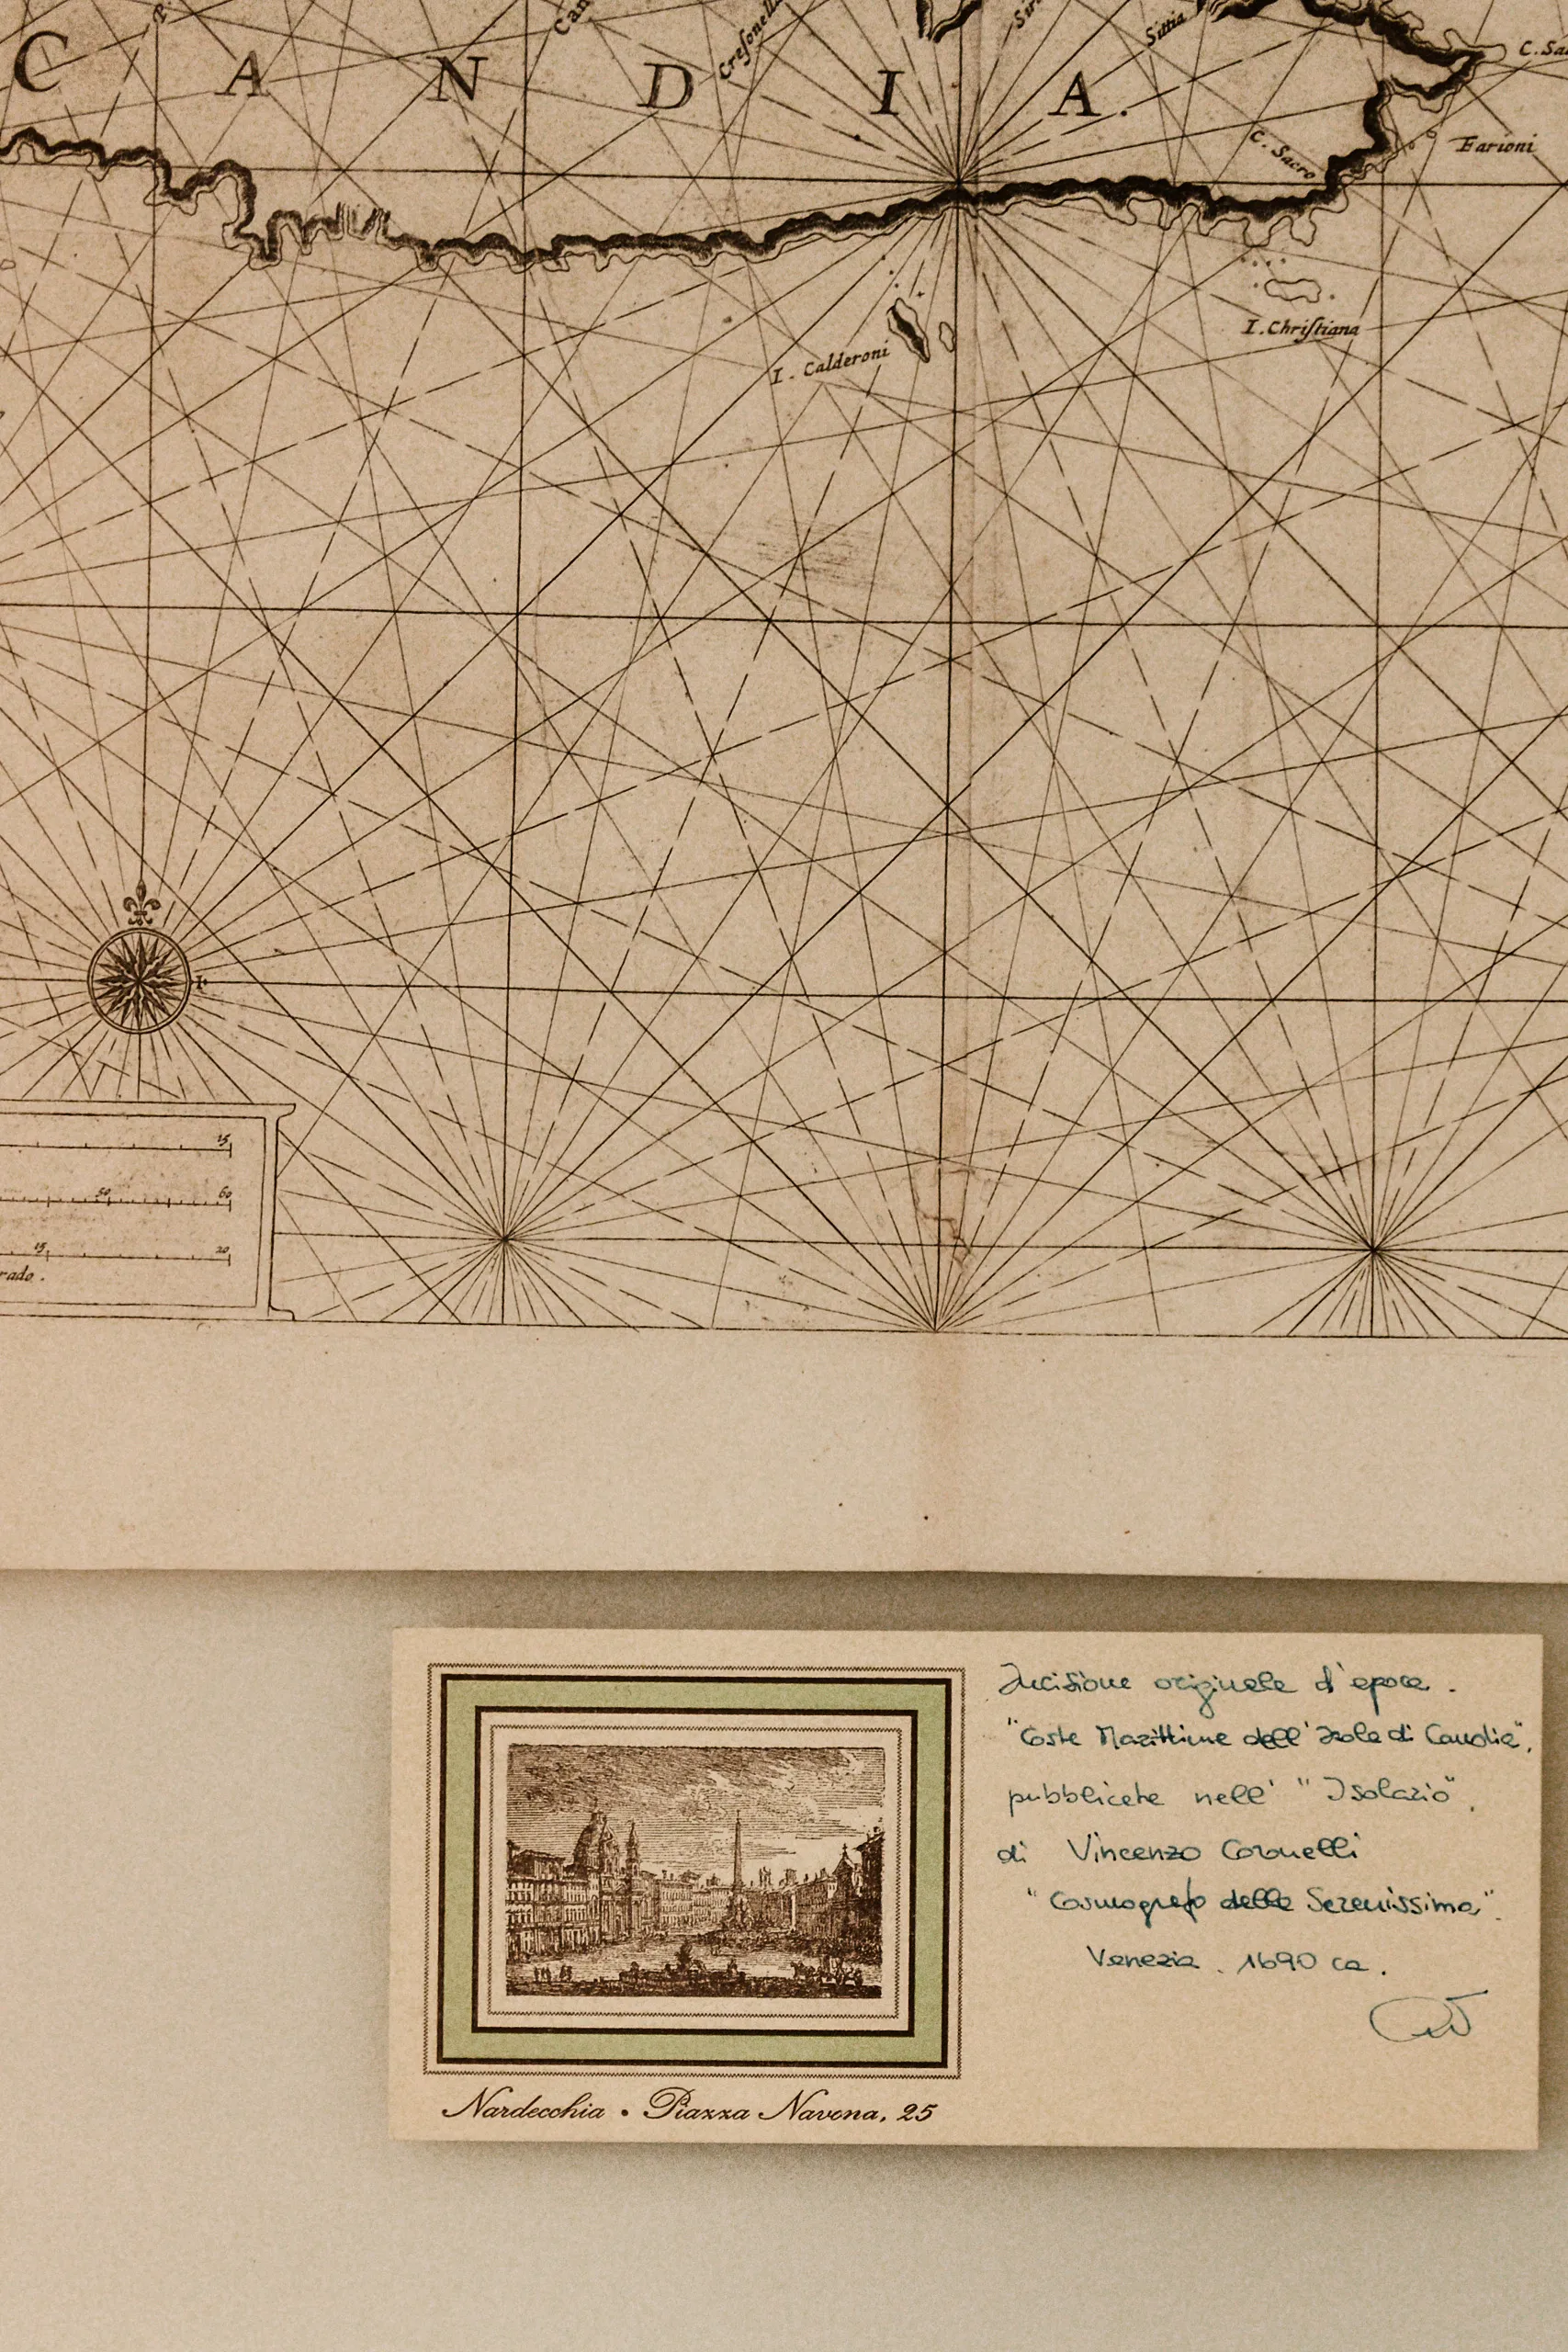 Cresonella
Sittia
C A N D I A.
C. Sacro
Farioni
I. Christiana
I. Calderoni
15
50 60
15 20
rado.
Incisione originale d'epoca.
"Coste Marittime dell'Isola di Candia",
pubblicata nell' "Isolario",
di Vincenzo Coronelli
"Cosmografo della Serenissima".
Venezia. 1690 ca.
Nardecchia • Piazza Navona, 25